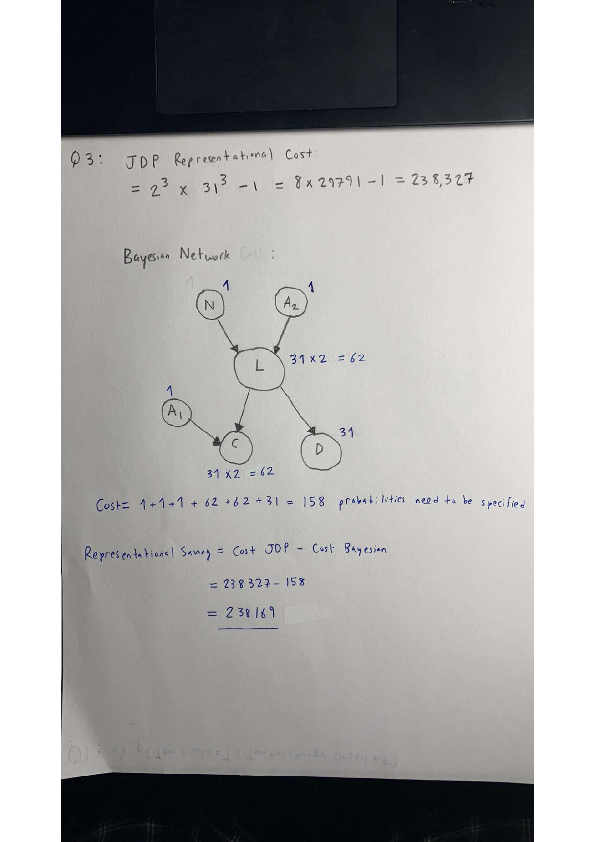 Q3: JDP Representational Cost:
= 2³ × 31³ - 1 = 8 × 29791 - 1 = 238,327
Bayesian Network Cost:
1 1 1
N A₂
L 31 × 2 = 62
1
A₁
C D 31
31 × 2 = 62
Cost = 1+1+1 + 62 + 62 + 31 = 158 probabilities need to be specified
Representational Saving = Cost JDP - Cost Bayesian
= 238327 - 158
= 238169